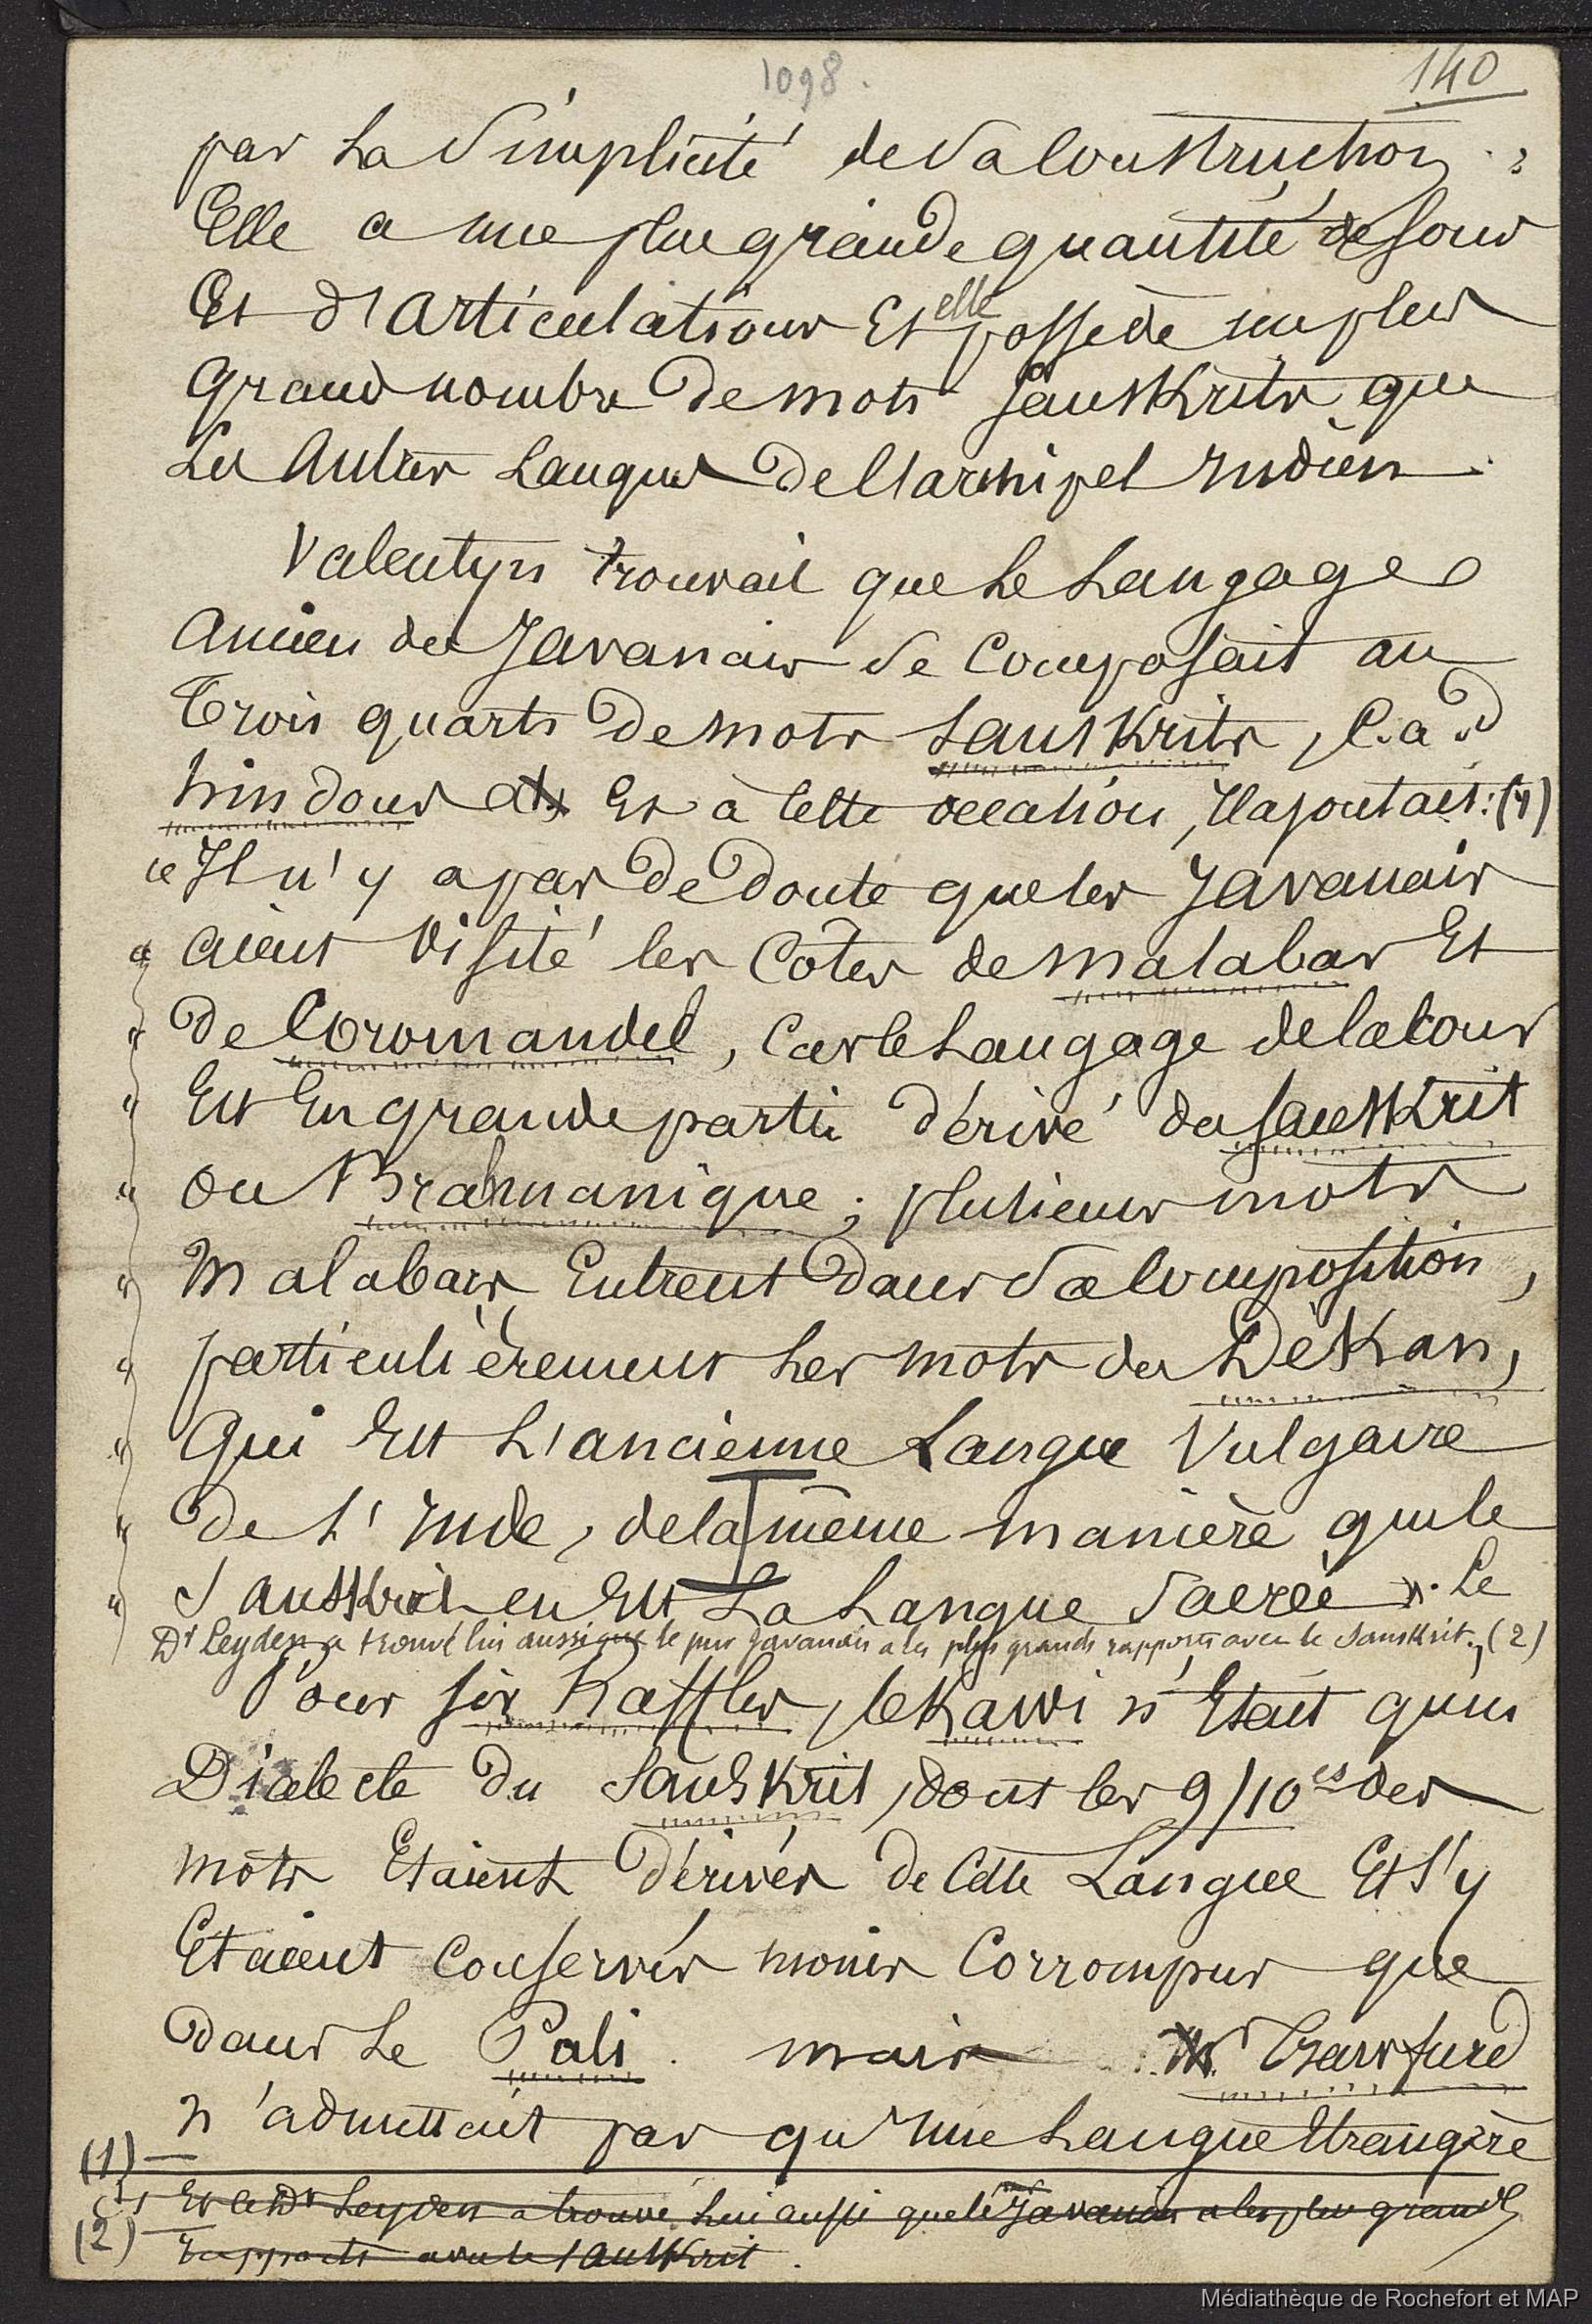 1098.
140
par La Simplicité de Sa Construction .
Elle a une plus grande quantité de Sons
Et d'articulations Et elle possède un plus
Grand nombre De mots Sanskrits que
Les Autres Langues De l'archipel Indien.
Valentyn trouvait que Le Langage
Ancien des Javanais Se Composait au
Trois quarts De mots Sanskrits, C.a.d
hindous Et à Cette occasion, Il ajoutait: (1)
« Il n'y a pas De Doute que les Javanais
« aient Visité les Côtes de Malabar Et
« De Coromandel, Car le Langage de la Cour
« Est En grande partie dérivé du Sanskrit
« ou Brahmanique ; plusieurs mots
« Malabars Entrent Dans Sa Composition,
« particulièrement Les mots du Dékan,
« Qui Est L'ancienne Langue Vulgaire
« De L'Inde, de la même manière que le
« Sanskrit en Est La Langue Sacrée . Le
Dr Leyden a trouvé lui aussi que le pur Javanais a les plus grands rapports avec le Sanskrit. (2)
Pour Sir Raffles, le Kawi n'Etait qu'un
Dialecte Du Sanskrit, dont les 9/10es des
mots Etaient Dérivés De Cette Langue Et S'y
Etaient Conservés moins Corrompus que
Dans Le Pali. mais Crawfurd
n'admettait pas qu'Une Langue Etrangère
(1) —
Et Le Dr Leyden a trouvé Lui aussi que le Javanais a les plus grands
(2) —
rapports avec le Sanskrit.
Médiathèque de Rochefort et MAP